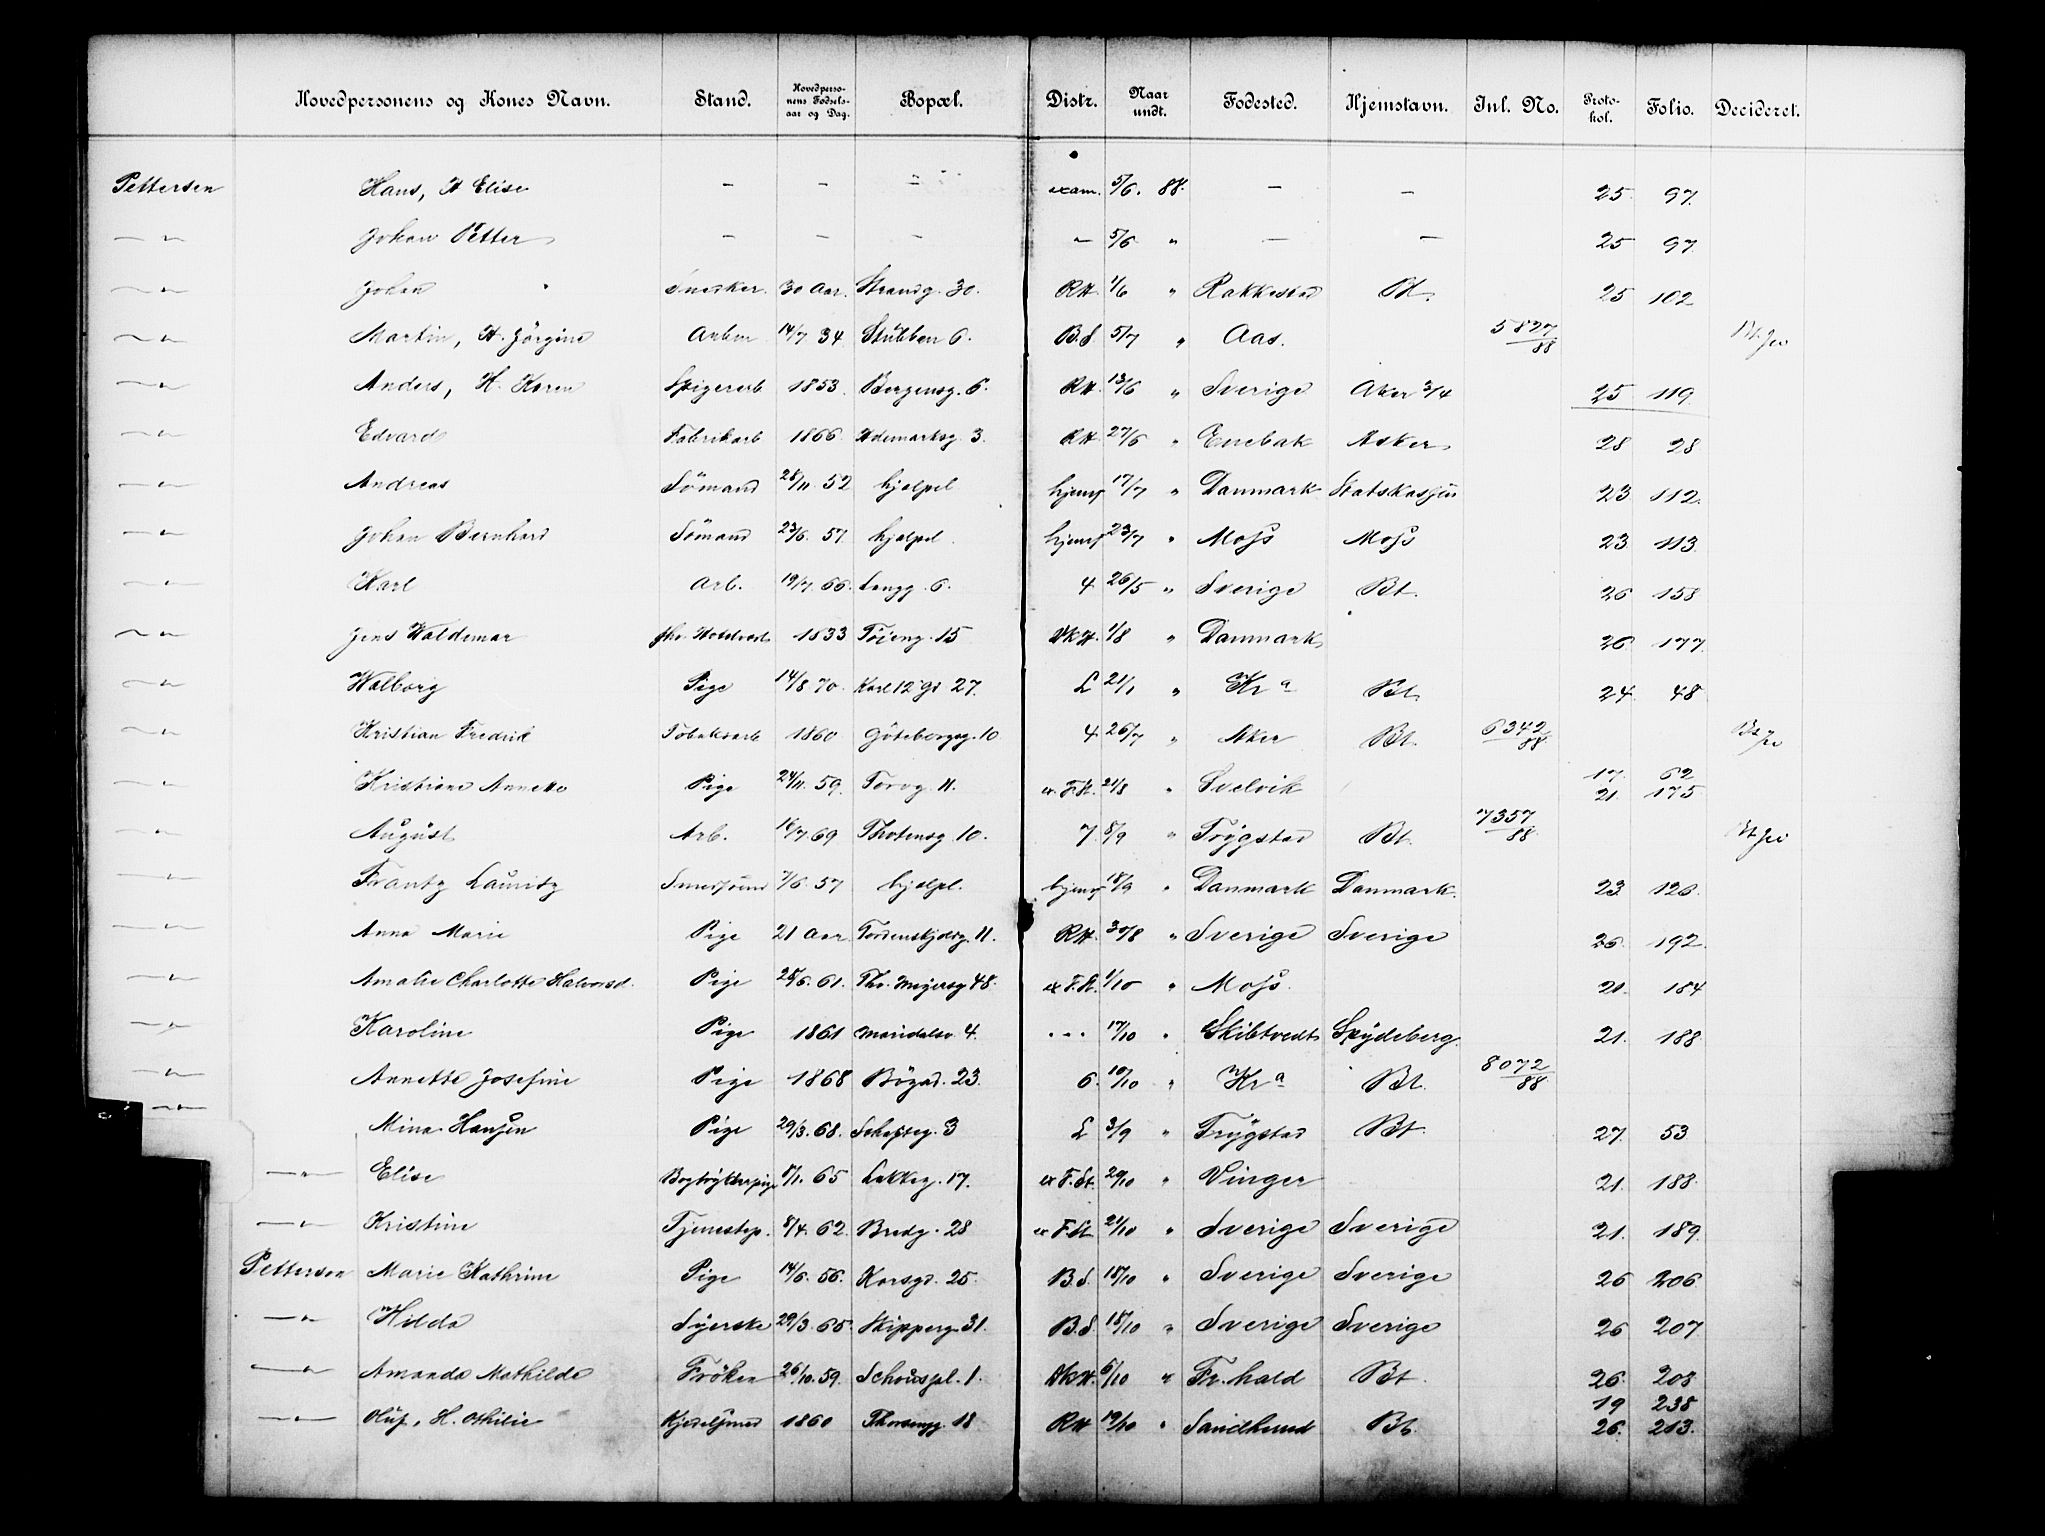 Hovedpersonens og Kones Navn. Stand. Hovedpersonens Fødselsaar og Dag. Bopæl. Distr. Naar undt. Fødested. Hjemstavn. Inl. No. Protokol. Folio. Decideret.
Pettersen Hans, H Elise — — — exam. 5/6. 88. — — 25 97.
—〃— Johan Petter — — — — 5/6 〃 — — 25 97.
—〃— Johan 〃 Snedker. 30 Aar. Strandg. 30. RH. 1/6 〃 Rakkestad Bt. 25 102
—〃— Martin, H. Jörgine Arbm 14/7 34 Stubben 6. B.S 5/7 〃 Aas. 5827/88
—〃— Anders, H. Karen Spigerarb 1853. Bergensg. 6. RH. 13/6 〃 Sverige Aker 3/4 25 119.
—〃— Edvard Fabrikarb 1866. Hdemarksg. 3. RH. 27/6 〃 Enebak Asker 28 28
—〃— Andreas Sömand 28/11. 52 hjelpel hjemf 17/7 〃 Danmark Statskassen 23 112.
—〃— Johan Bernhard Sömand 23/6. 57. hjelpel. hjemf 23/7 〃 Moss Moss 23 113.
—〃— Karl Arb. 19/7. 66. Langg. 6. 4 26/5 〃 Sverige Bt. 26 158
—〃— Jens Waldemar fhv. Hotelvært 1833 Töieng. 15 VKH. 1/8 〃 Danmark 26 177.
—〃— Walborg Pige 14/8 70. Karl 12 Gd 27. L 21/1 〃 Kra Bt. 24. 48
—〃— Kristian Fredrik Tobaksarb 1860 Göteborgsg. 10 4 26/7 〃 Aker Bt. 6342/88
—〃— Kristiane Annette Pige 24/11. 59. Torvg. 11. ex. F.St. 21/8 〃 Svelvik 17. 62
21. 175
—〃— August Arb. 16/7. 69 Thotensg 10. 7 8/9 〃 Trygstad Bt. 7357/88
—〃— Frantz Lauritz 7/6. 57 hjelpl. hjemf 18/9 〃 Danmark Danmark. 23 126.
—〃— Anna Marie Pige 21 Aar Tordenskjoldsg. 11. RH. 30/8 〃 Sverige Sverige 26. 192.
—〃— Amalie Charlotte Halvorsd. Pige 28/6. 61. Thv. Meyersg 48. ex F.St. 1/10 〃 Moss. 21. 184
—〃— Karoline Pige 1861 Maridalsv. 4. 〃 17/10 〃 Skibtvedt Spydeberg. 21. 188
—〃— Annette Josefine Pige 1868 Bögad. 23. 6. 10/10 〃 Kra Bt. 8072/88
—〃— Mina Hansen Pige 29/3. 68. 3 L 3/9 〃 Trygstad Bt. 27. 53
—〃— Elise Bogtrykkerpige 8/1. 65 Lakkeg. 17. ex F.St. 20/10 〃 Vinger 21. 188.
—〃— Kristine Tjenestep. 8/4. 62. Bredg. 28 ex F.St 21/10 〃 Sverige Sverige 21. 189.
Pettersen Marie Kathrine Pige 14/6. 56. Korsgd. 25. B.S. 18/10 〃 Sverige Sverige 26 206.
—〃— Hilda Syerske 29/3. 65. Skipperg. 31. B.S. 18/10 〃 Sverige Sverige 26 207
—〃— Amanda Mathilde Fröken 26/10. 59. Schouspl. 1. VKH. 6/10 〃 Fr.hald Bt. 26. 208
19 238
—〃— Oluf, H. Othilie Kjedelsmed 1860 18 RH 19/10 〃 Bt. 26. 213.